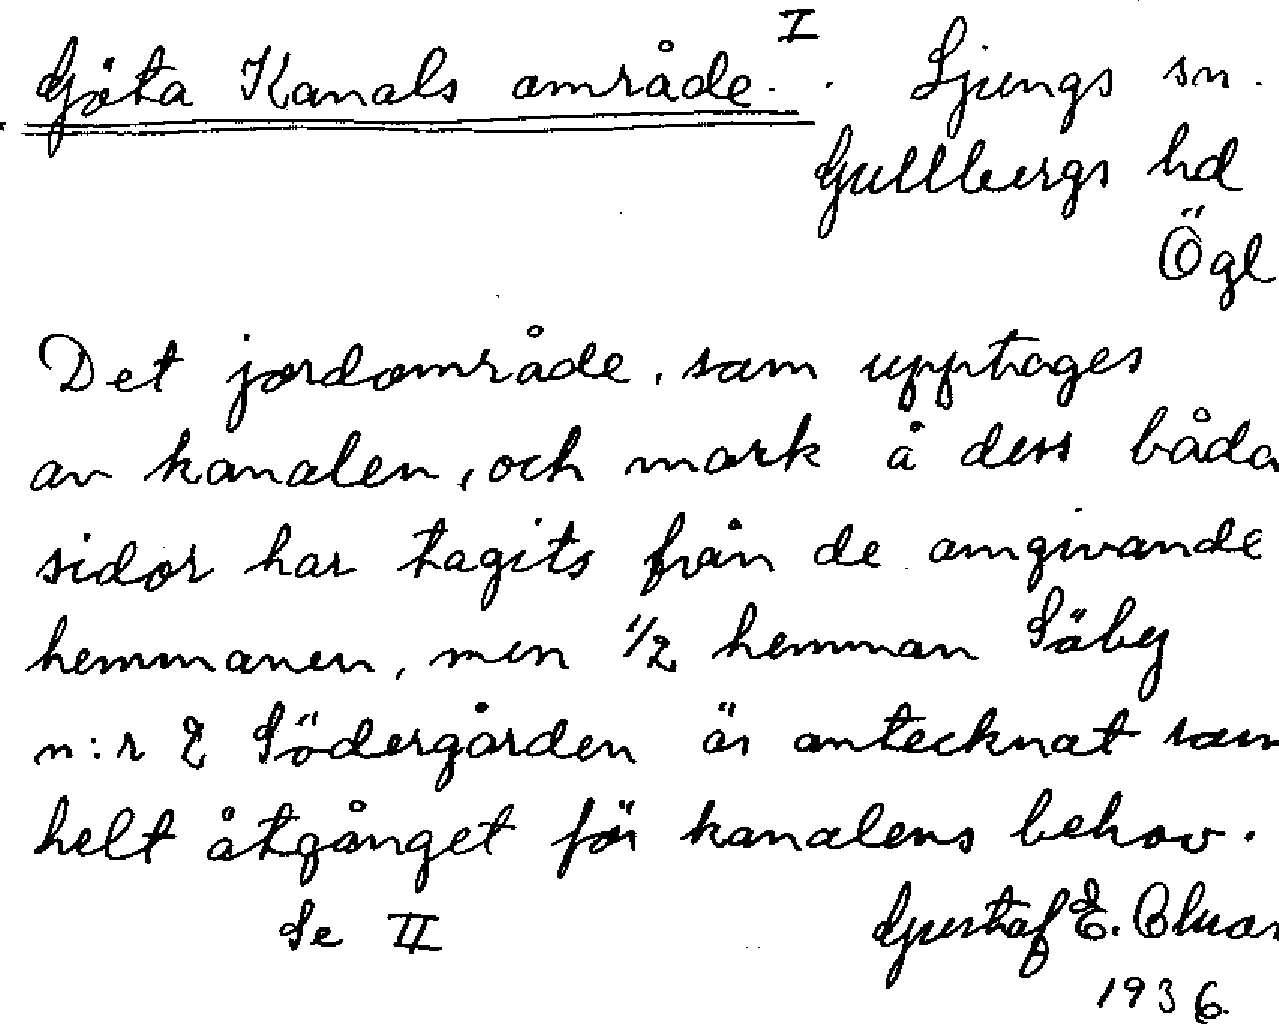 Göta Kanals område. I. Ljungs sn.
Gullbergs hd
Ögl
Det jordområde, som upptages
av kanalen, och mark å dess båda
sidor har tagits från de omgivande
hemmanen, men 1/2 hemman Säby
n:r 2 Södergården är antecknat som
helt åtgånget för kanalens behov.
Se II
Gustaf E.
1936.